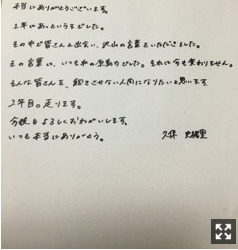 本当にありがとうございます。
1年にあっというまでした。
その中で皆さんと出会い、沢山の言葉をいただきました。
その言葉は、いつも私の原動力でした。それは今も変わりません。
そんな皆さんを、飽きさせない人間になりたいと思います。
2年目も走ります。
今後もよろしくおねがいします。
いつも本当にありがとう。
久保 史緒里